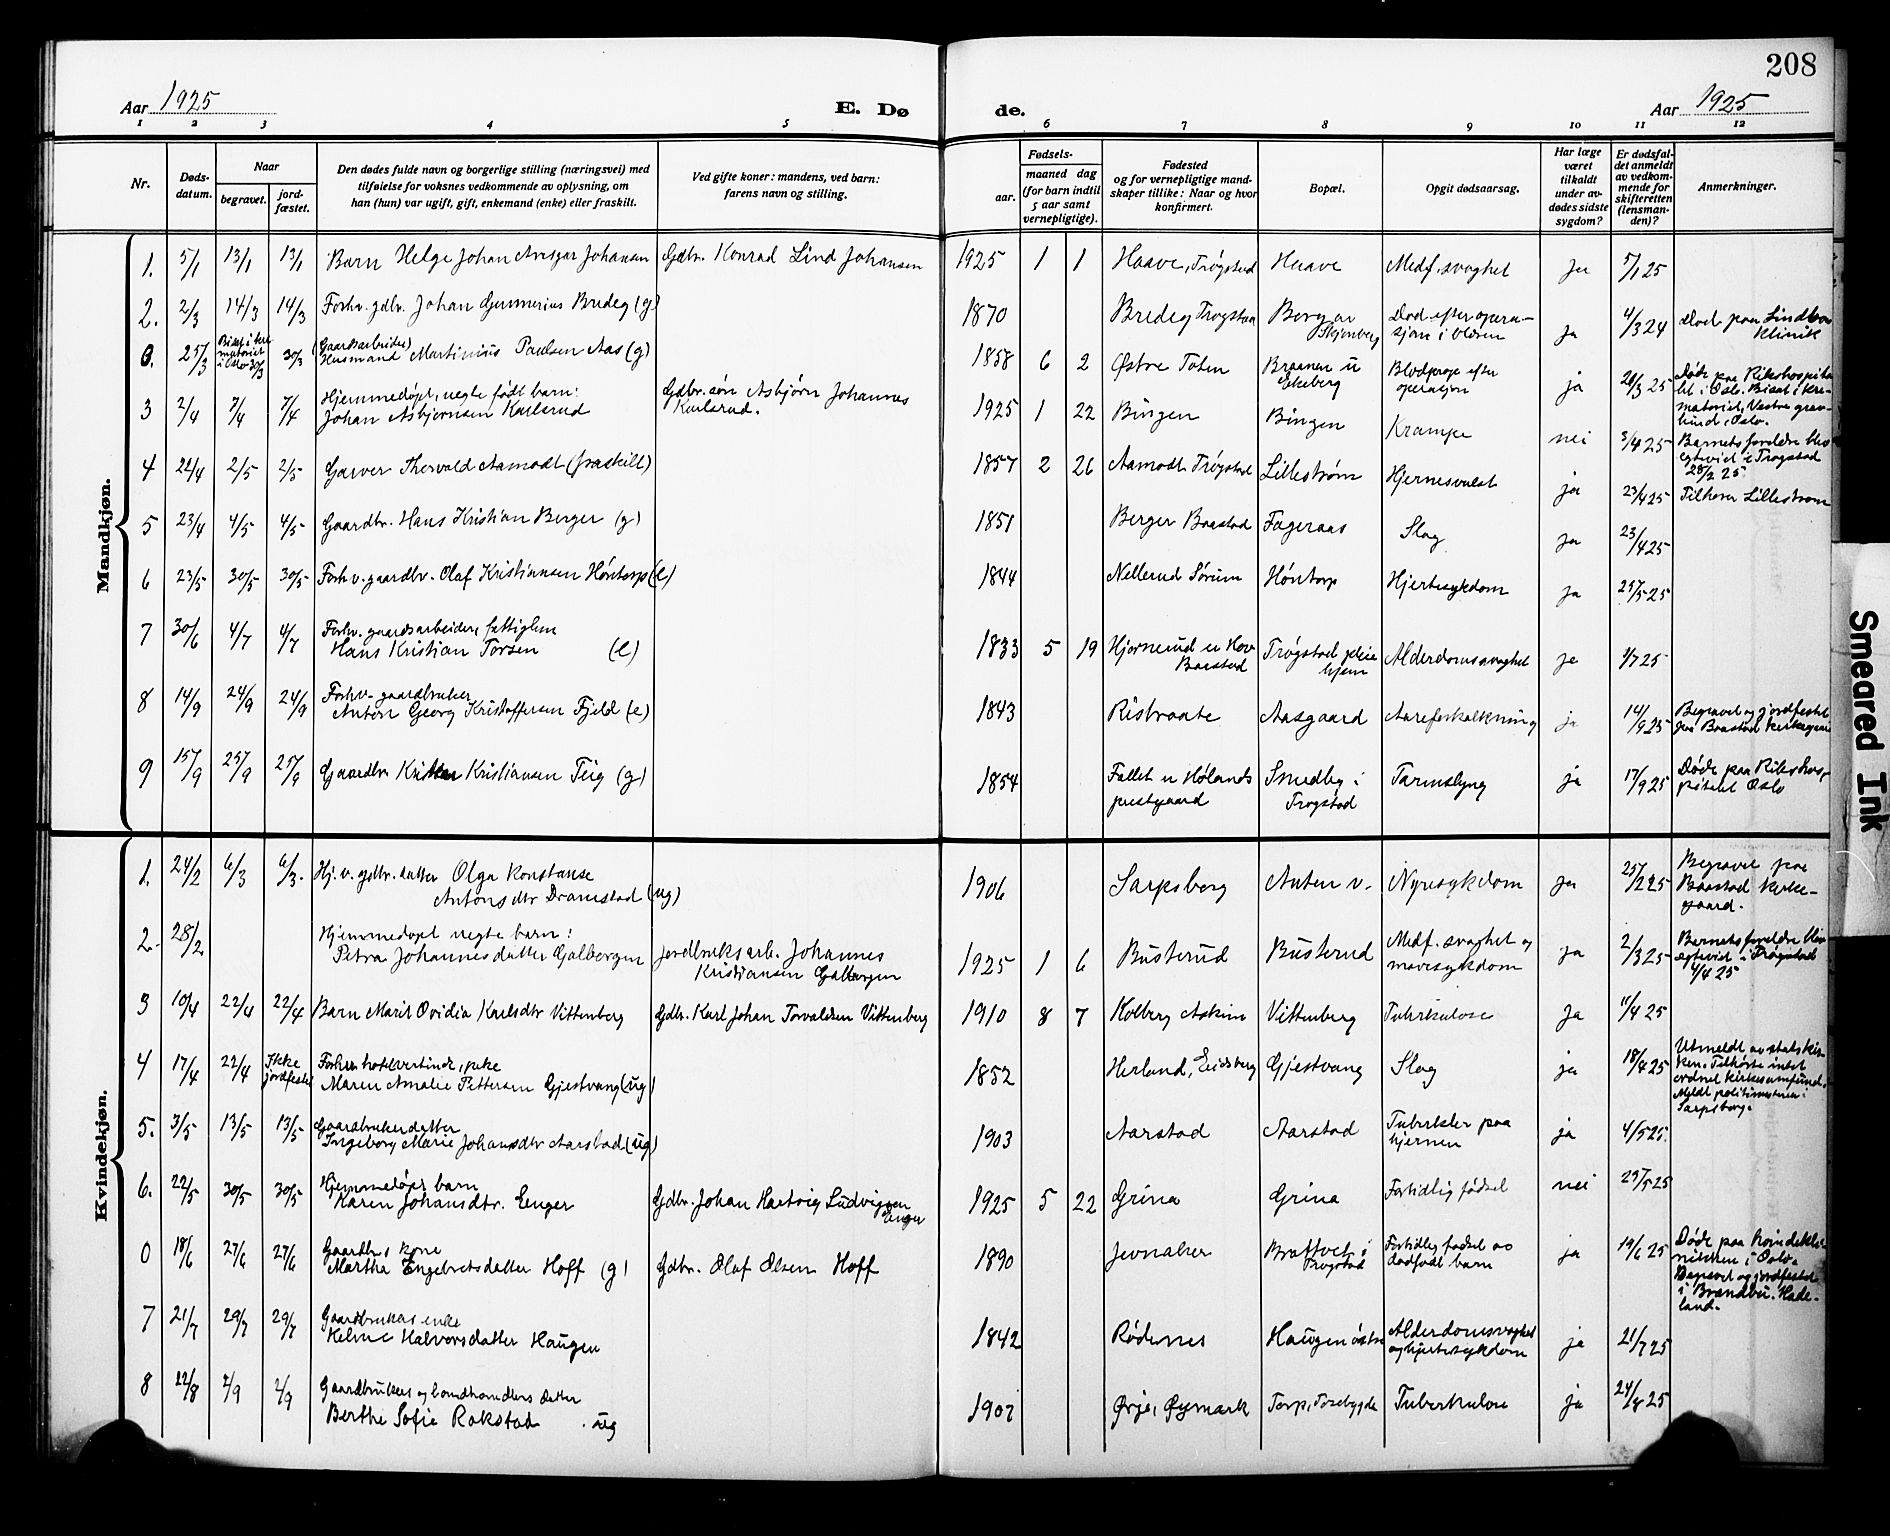 208
Aar 1925 E. Døde. Aar 1925
1 2 3 4 5 6 7 8 9 10 11 12
Nr. Døds-datum. Naar begravet. jord-fæstet. Den dødes fulde navn og borgerlige stilling (næringsvei) med tilføielse for voksnes vedkommende av oplysning, om han (hun) var ugift, gift, enkemand (enke) eller fraskilt. Ved gifte koner: mandens, ved barn: farens navn og stilling. Fødsels- aar. maaned dag (for barn indtil 5 aar samt vernepligtige). Fødested og for vernepligtige mandskaper tillike: Naar og hvor konfirmert. Bopæl. Opgit dødsaarsag. Har læge været tilkaldt under avdødes sidste sygdom? Er dødsfaldet anmeldt av vedkommende for skifteretten (lensmanden)? Anmerkninger.
Mandkjøn.
1. 5/1 13/1 13/1 Barn Helge Johan Ansgar Johansen Gdbr. Konrad Lind Johansen 1925 1 1 Haave, Trøgstad Haave Medf. svaghet ja 5/1 25
2. 2/3 14/3 14/3 Forhv. gdbr. Johan Gunnerius Bredeg (g) 1870 Bredeg Trøgstad Død efter operasjon ja 4/3 24 Død paa Klinik
0. 25/3 Bisat i krematoriet i Oslo 30/3 30/3 (Gaardsarbeider) Husmand Martinius Paulsen Aas (g) 1858 6 2 Østre Toten Braanen u Ekeberg Blodprop efter operasjon ja 26/3 25 Døde paa Rikshospitalet i Oslo. Bisat i krematoriet, Vestre gravlund, Oslo.
3 2/4 7/4 7/4 Hjemmedøpt, uegte født barn: Johan Asbjørnsen Karlsrud Gdbr. søn Asbjørn Johannes Karlsrud. 1925 1 22 Bingen Bingen Krampe nei 3/4 25 Barnets foreldre blev egteviet i Trøgstad 28/2 25
4 22/4 2/5 2/5 Garver Thorvald Aamodt (fraskilt) 1857 2 26 Aamodt Trøgstad Lillestrøm Hjernesvulst ja 23/4 25 Tilhører Lillestrøm
5 23/4 4/5 4/5 Gaardbr. Hans Kristian Berger (g) 1851 Berger Baastad Fageraas Slag ja 23/4 25
6 23/5 30/5 30/5 Forhv. gaardbr. Olaf Kristiansen Høntorp (e) 1844 Nellerud Sørum Høntorp Hjertesykdom ja 25/5 25
7 30/6 4/7 4/7 Forhv. gaardsarbeider, fattiglem Hans Kristian Torsen (e) 1833 5 19 Hjørnerud u Hov Baastad Trøgstad pleiehjem Alderdomssvaghet ja 1/7 25
8 14/9 24/9 24/9 Forhv. gaardbruker Anton Georg Kristoffersen Fjeld (e) 1843 Risbraate Aasgaard Aareforkalkning ja 14/9 25 Begravet og jordfestet paa Baastad kirkegaard
9 15/9 25/9 25/9 Gaardbr. Kristian Kristiansen Teig (g) 1854 Fallet u Hølands prestgaard Smedby i Trøgstad Tarmslyng ja 17/9 25 Døde paa Rikshospitalet Oslo
Kvindekjøn.
1. 24/2 6/3 6/3. Hj. v. gdbr. datter Olga Konstanse Antonsdtr Dramstad (ug) 1906 Sarpsborg Nyresykdom ja 25/2 25 Begravet paa Baastad kirkegaard.
2. 28/2 Hjemmedøpt uegte barn: Petra Johannesdatter Galbergen Jordbruksarb. Johannes Kristiansen Galbergen 1925 1 6 Busterud Busterud Medf. svaghet og mavesykdom ja 2/3 25 Barnets foreldre blev egteviet i Trøgstad 4/4 25
3 10/4 22/4 22/4 Barn Marit Ovidia Karlsdtr Vittenberg Gdbr. Karl Johan Torvaldsen Vittenberg 1910 8 7 Kolberg Askim Vittenberg Tuberkulose Ja 11/4 25
4 17/4 22/4 Ikke jordfestet Forhen hotelvertinde, pike Maren Amalie Pettersen Gjestvang (ug) 1852 Herland, Eidsberg Gjestvang Slag ja 18/4 25 Utmeldt av statskirken. Tilhørte intet ordnet kirkesamfund. Meldt politimesteren i Sarpsborg.
5. 3/5 13/5 13/5 Gaardbrukerdatter Ingeborg Marie Johansdtr Aarstad (ug) 1903 Aarstad Aarstad Tuberkler paa hjernen ja 4/5 25.
6. 22/5 30/5 30/5 Hjemmedøpt barn Karen Johansdtr. Enger Gdbr. Johan Hartvig Ludvigsen Enger 1925 5 22 Grina Grina Fortidlig fødsel nei 25/5 25
0 18/6 27/6 27/6 Gaardbr.s kone Martha Engebretsdatter Hoff (g) Gdbr. Olaf Olsen Hoff 1890 Jevnaker Brattvet i Trøgstad Fortidlig fødsel av dødfødt barn ja 19/6 25 Døde paa kvindeklinikken i Oslo. Begravet og jordfestet i Brandbu. Hadeland.
7 21/7 29/7 29/7 Gaardbrukers enke Helene Halvorsdatter Haugen 1842 Rødenes Haugen østre Alderdomssvaghet og hjertesykdom ja 21/7 25
8 22/8 2/9 2/9 Gaardbrukers og landhandlers datter Berthe Sofie Rakstad ug 1907 Ørje, Øymark Torp, Tosebygda Tuberkulose ja 24/8 25
Smeared Ink